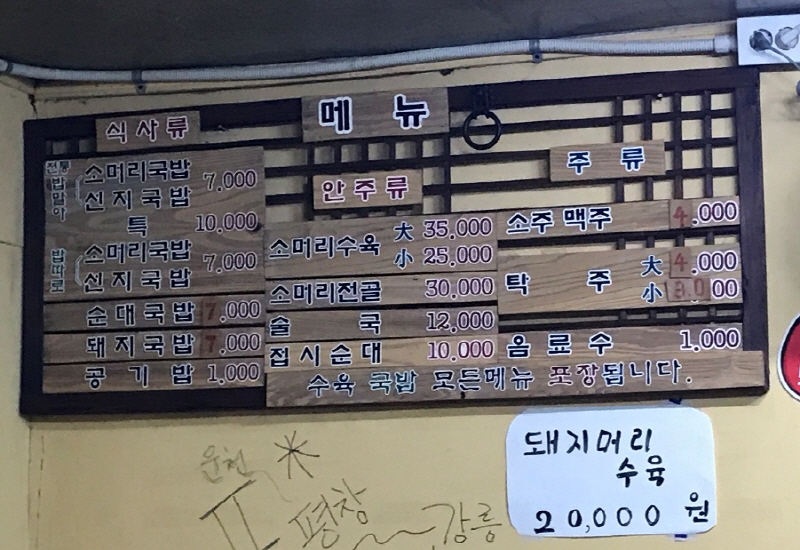 메뉴
식사류
전통 밥말아
소머리국밥 7,000
선지국밥
특 10,000
밥따로
소머리국밥 7,000
선지국밥
순대국밥 7,000
돼지국밥 7,000
공기밥 1,000
안주류
소머리수육 大 35,000
小 25,000
소머리전골 30,000
술국 12,000
접시순대 10,000
주류
소주 맥주 4,000
탁주 大 4,000
小
음료수 1,000
수육 국밥 모든메뉴 포장됩니다.
돼지머리
수육
20,000 원
운천
평창
강릉